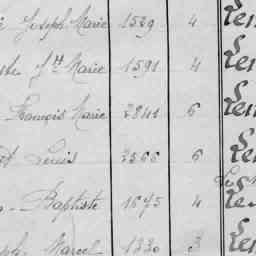 Joseph Marie 1529 4 Len
Marie 1591 4 Len
François Marie 2841 6 Len
Louis 2566 6 Len
Baptiste 1675 4 Len
Marcel 1330 3 Len